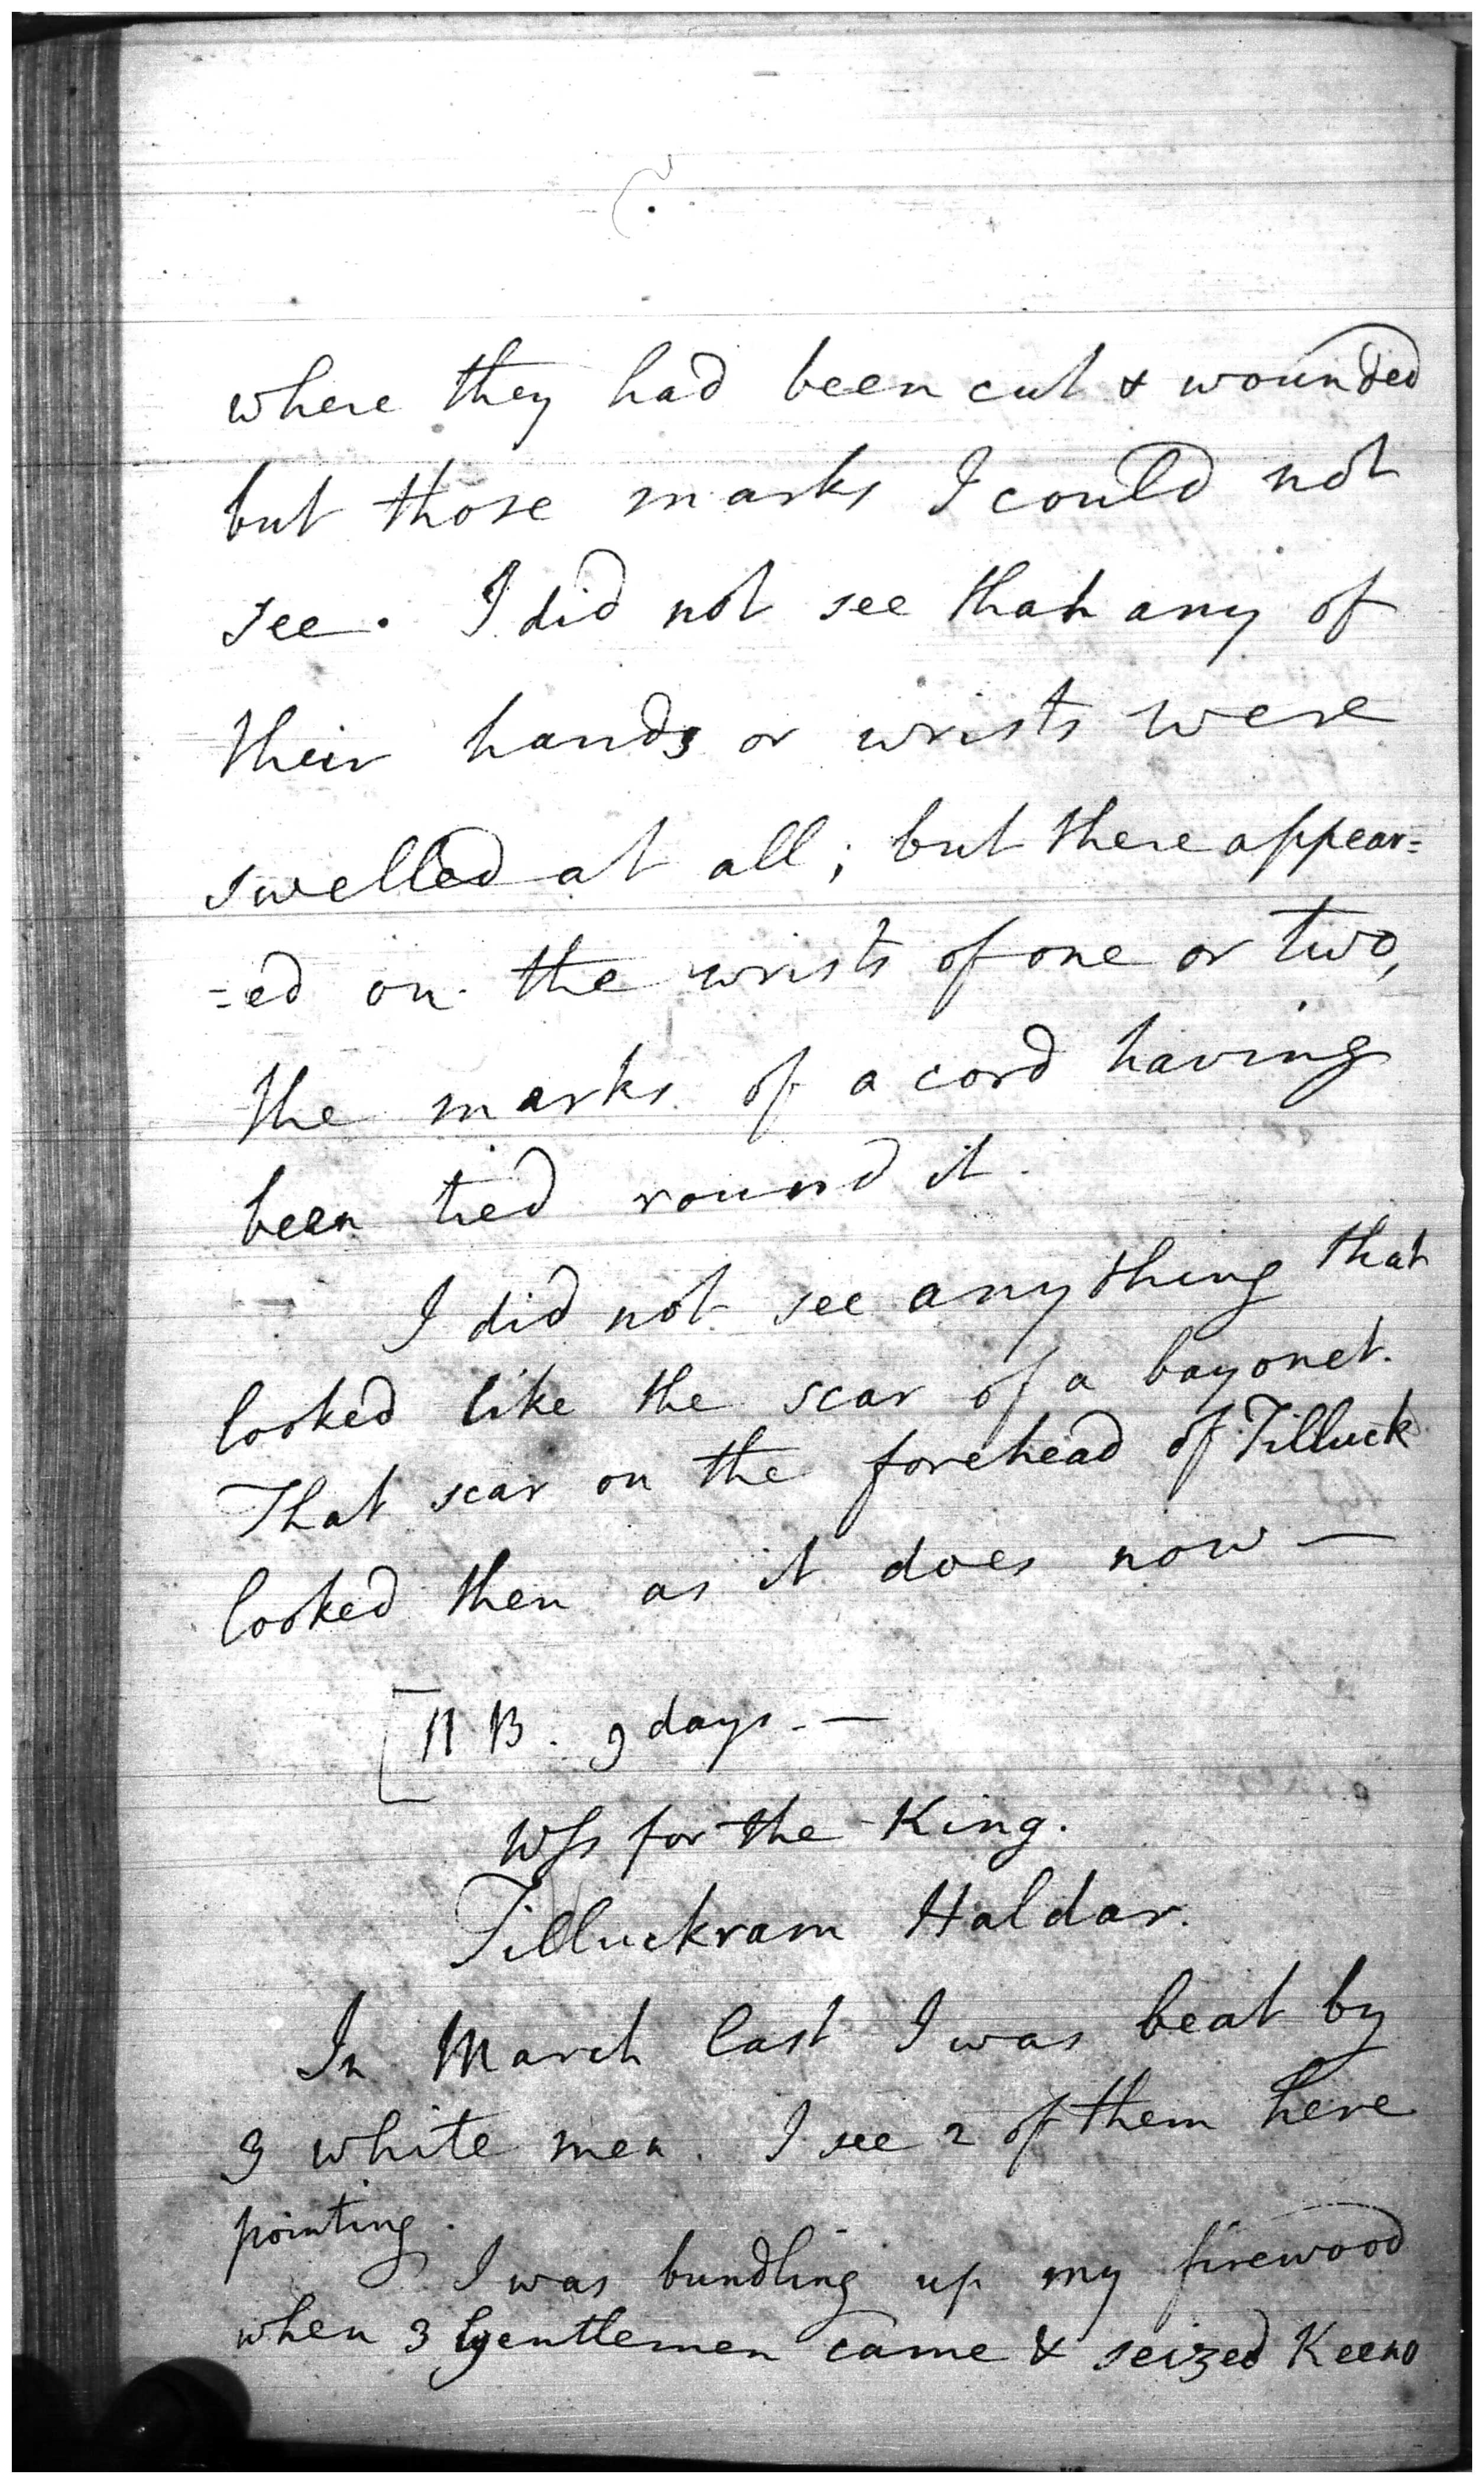 where they had been cut & wounded
but those marks I could not
see. I did not see that any of
their hands or wrists were
swelled at all; but there appear=
=ed on the wrists of one or two,
the marks of a cord having
been tied round it.
I did not see any thing that
looked like the scar of a bayonet.
That scar on the forehead of Tilluck
looked then as it does now —
[NB. 9 days. —
Wss for the King.
Tilluckram Haldar.
In March last I was beat by
3 white men. I see 2 of them here
pointing.
I was bundling up my firewood
when 3 gentlemen came & seized Keeno